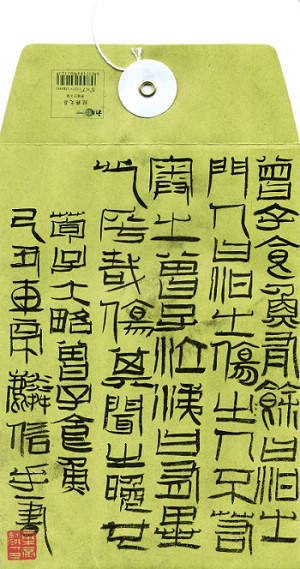 曾子食魚有餘曰泔之
門人曰泔之傷之人不若
奧之曾子泣涕曰有異
心乎哉傷其聞之晚也
荀子大略曾子食魚
己丑麟信手書